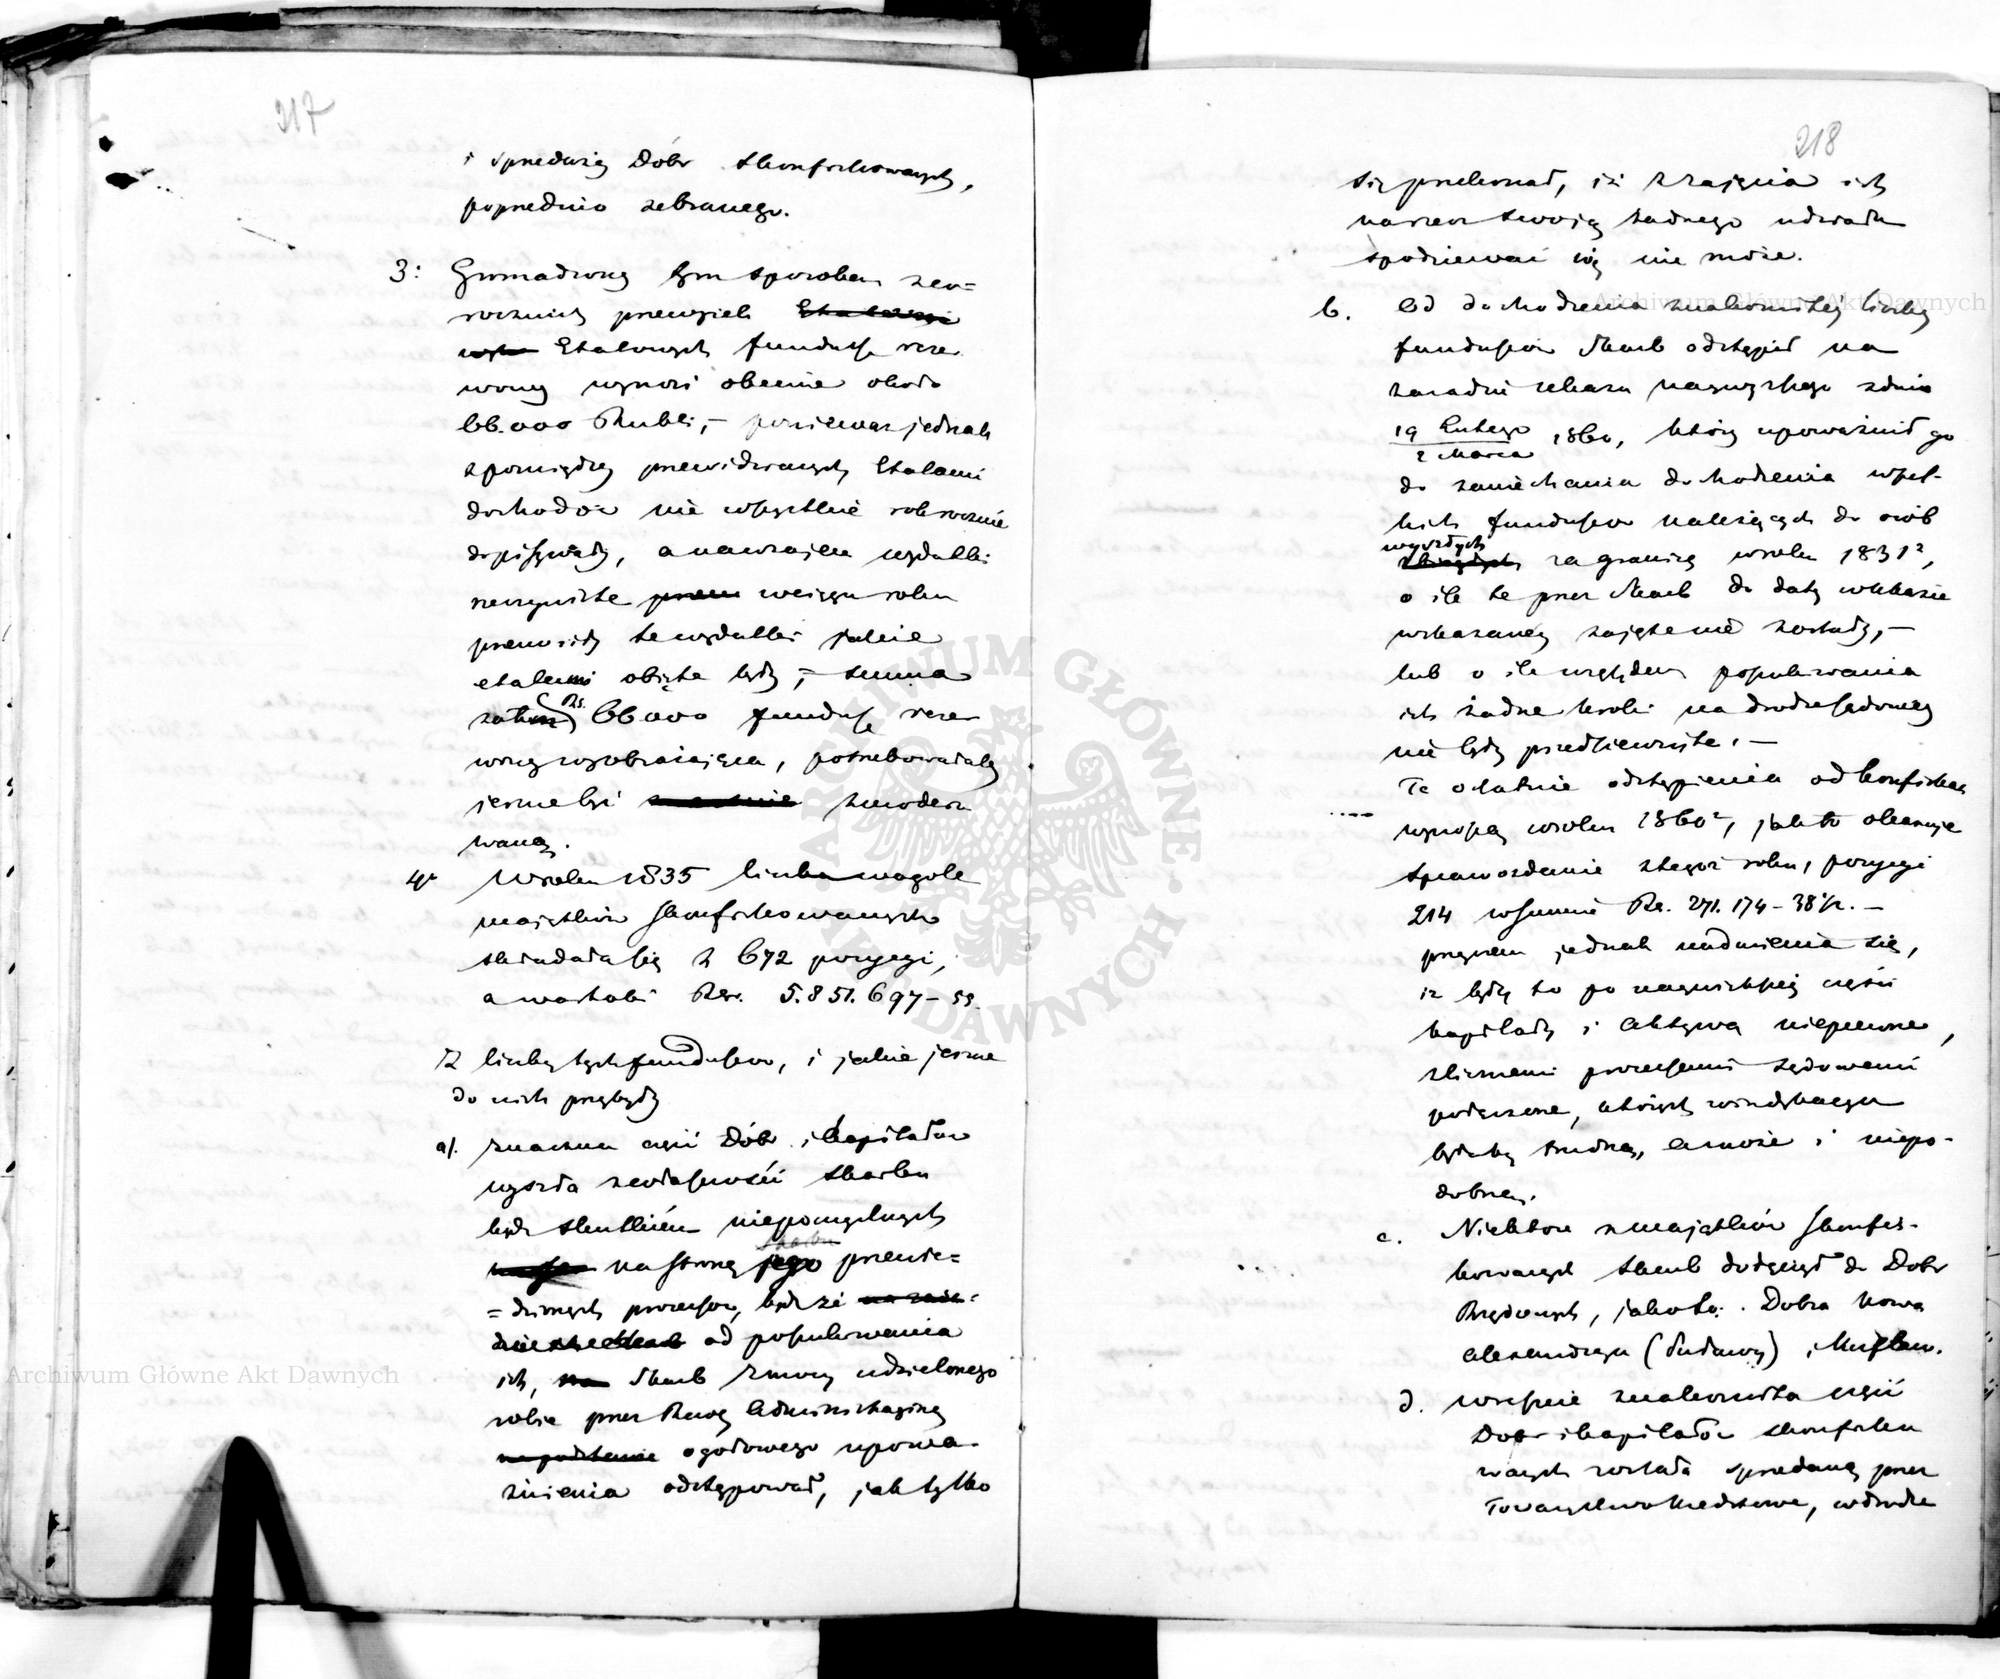 217
i sprzedaży Dóbr skonfiskowanych,
poprzednio zebranego.
3: Gromadzony tym sposobem zew=
rocznie przewyżek
Etatowych fundusz rezer
wowy wynosi obecnie około
66.000 Rubli, – ponieważ jednak
z pomiędzy przewidzianych Etatami
dochodów nie wszystkie corocznie
dopisywały, a nawzajem wydatki
rzeczywiste w ciągu roku
przenosiły te wydatki jakie
etatami objęte były, – summa
zatem Rs. 66000 fundusz rezer
wowy wyobrażająca, potrzebowałaby
jeszcze być zmodero
waną.
4o W roku 1835 liczba w ogóle
majątków skonfiskowanych
składała się z 672 pozycyi,
a wartości Rsr. 5.851.697–53.
Z liczby tych funduszów, i jakie jeszcze
do nich przybyły
a). znaczna część Dóbr i kapitałów
wyszła z własności skarbu
bądź skutkiem niepomyślnych
na stronę Skarbu jego przewie=
=dzionych procesów, bądź że
od poszukiwania
ich, Skarb z mocy udzielonego
sobie przez Radę Administracyjną
ogółowego upowa-
żnienia odstępował, jak tylko
218
się przekonał, iż z zajęcia ich
na rzecz swoją żadnego udziału
spodziewać się nie może.
b. Od dochodzenia znakomitej liczby
funduszów Skarb odstąpił na
zasadzie ukazu najwyższego z dnia
19 Lutego
2 Marca 1860, który upoważnił go
do zaniechania dochodzenia wszel-
kich funduszów należących do osób
wyszłych
za granicę w roku 1831r,
o ile te przez Skarb do daty w ukazie
wskazanej zajęte nie zostały, –
lub o ile względem poszukiwania
ich żadne kroki na drodze sądowej
nie były przedsiewzięte. –
Te ostatnie odstąpienia od konfiskat
wynoszą w roku 1860r, jak to okazuje
sprawozdanie z tegoż roku, pozycyi
214 w summie Rs. 271.174–38½. –
przyczem jednak nadmienia się,
iż były to po największej części
kapitały i aktywa niepewne,
z licznemi procesami sądowemi
połączone, których windykacya
byłaby trudną, a może i niepo-
dobną.
c. Niektóre z majątków skonfis-
kowanych Skarb dołączył do Dóbr
Rządowych, jako to: Dobra Nowa
Alexandrya (Puławy) i
d. wreszcie znakomita część
Dóbr i kapitałów skonfisko
wanych została sprzedaną przez
Towarzystwo Kredytowe, w drodze
Archiwum Główne Akt Dawnych
Archiwum Główne Akt Dawnych
ARCHIWUM GŁÓWNE AKT DAWNYCH